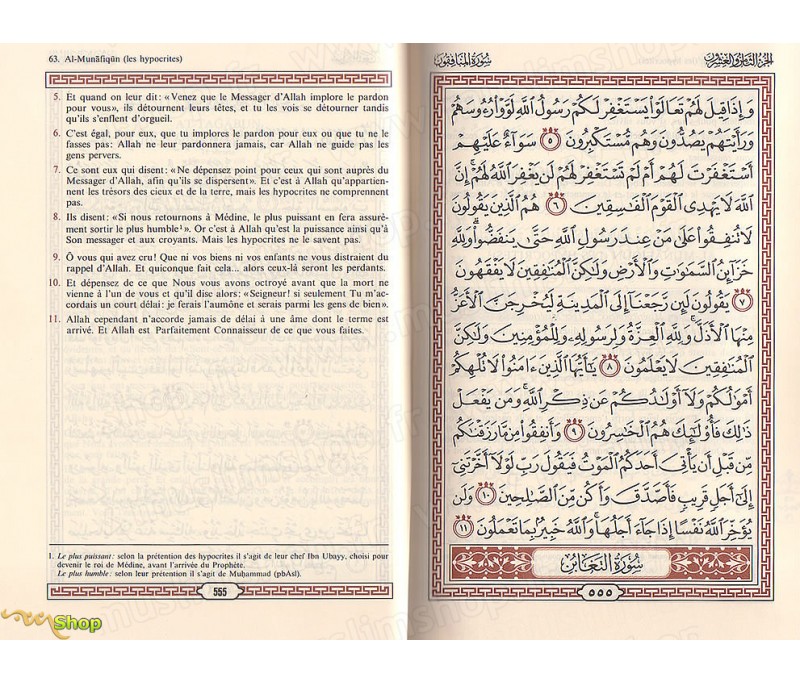 63. Al-Munāfiqūn (les hypocrites)
5. Et quand on leur dit: «Venez que le Messager d'Allah implore le pardon
pour vous», ils détournent leurs têtes, et tu les vois se détourner tandis
qu'ils s'enflent d'orgueil.
6. C'est égal, pour eux, que tu implores le pardon pour eux ou que tu ne le
fasses pas: Allah ne leur pardonnera jamais, car Allah ne guide pas les
gens pervers.
7. Ce sont eux qui disent: «Ne dépensez point pour ceux qui sont auprès du
Messager d'Allah, afin qu'ils se dispersent». Et c'est à Allah qu'appartien-
nent les trésors des cieux et de la terre, mais les hypocrites ne comprennent
pas.
8. Ils disent: «Si nous retournons à Médine, le plus puissant en fera assuré-
ment sortir le plus humble¹». Or c'est à Allah qu'est la puissance ainsi qu'à
Son messager et aux croyants. Mais les hypocrites ne le savent pas.
9. Ô vous qui avez cru! Que ni vos biens ni vos enfants ne vous distraient du
rappel d'Allah. Et quiconque fait cela... alors ceux-là seront les perdants.
10. Et dépensez de ce que Nous vous avons octroyé avant que la mort ne
vienne à l'un de vous et qu'il dise alors: «Seigneur! si seulement Tu m'ac-
cordais un court délai: je ferais l'aumône et serais parmi les gens de bien».
11. Allah cependant n'accorde jamais de délai à une âme dont le terme est
arrivé. Et Allah est Parfaitement Connaisseur de ce que vous faites.
1. Le plus puissant: selon la prétention des hypocrites il s'agit de leur chef Ibn Ubayy, choisi pour
devenir le roi de Médine, avant l'arrivée du Prophète.
Le plus humble: selon leur prétention il s'agit de Muḥammad (pbAsl).
555
Shop
سُورَةُ المنَافِقُون الجُزءُ الثَّامِنُ وَالعِشْرُونَ
وَإِذَا قِيلَ لَهُمْ تَعَالَوْا۟ يَسْتَغْفِرْ لَكُمْ رَسُولُ ٱللَّهِ لَوَّوْا۟ رُءُوسَهُمْ
وَرَأَيْتَهُمْ يَصُدُّونَ وَهُم مُّسْتَكْبِرُونَ ٥ سَوَآءٌ عَلَيْهِمْ
أَسْتَغْفَرْتَ لَهُمْ أَمْ لَمْ تَسْتَغْفِرْ لَهُمْ لَن يَغْفِرَ ٱللَّهُ لَهُمْ إِنَّ
ٱللَّهَ لَا يَهْدِى ٱلْقَوْمَ ٱلْفَـٰسِقِينَ ٦ هُمُ ٱلَّذِينَ يَقُولُونَ
لَا تُنفِقُوا۟ عَلَىٰ مَنْ عِندَ رَسُولِ ٱللَّهِ حَتَّىٰ يَنفَضُّوا۟ وَلِلَّهِ
خَزَآئِنُ ٱلسَّمَـٰوَٰتِ وَٱلْأَرْضِ وَلَـٰكِنَّ ٱلْمُنَـٰفِقِينَ لَا يَفْقَهُونَ
٧ يَقُولُونَ لَئِن رَّجَعْنَآ إِلَى ٱلْمَدِينَةِ لَيُخْرِجَنَّ ٱلْأَعَزُّ
مِنْهَا ٱلْأَذَلَّ وَلِلَّهِ ٱلْعِزَّةُ وَلِرَسُولِهِۦ وَلِلْمُؤْمِنِينَ وَلَـٰكِنَّ
ٱلْمُنَـٰفِقِينَ لَا يَعْلَمُونَ ٨ يَـٰٓأَيُّهَا ٱلَّذِينَ ءَامَنُوا۟ لَا تُلْهِكُمْ
أَمْوَٰلُكُمْ وَلَآ أَوْلَـٰدُكُمْ عَن ذِكْرِ ٱللَّهِ وَمَن يَفْعَلْ
ذَٰلِكَ فَأُو۟لَـٰٓئِكَ هُمُ ٱلْخَـٰسِرُونَ ٩ وَأَنفِقُوا۟ مِن مَّا رَزَقْنَـٰكُم
مِّن قَبْلِ أَن يَأْتِىَ أَحَدَكُمُ ٱلْمَوْتُ فَيَقُولَ رَبِّ لَوْلَآ أَخَّرْتَنِىٓ
إِلَىٰٓ أَجَلٍ قَرِيبٍ فَأَصَّدَّقَ وَأَكُن مِّنَ ٱلصَّـٰلِحِينَ ١٠ وَلَن
يُؤَخِّرَ ٱللَّهُ نَفْسًا إِذَا جَآءَ أَجَلُهَا وَٱللَّهُ خَبِيرٌۢ بِمَا تَعْمَلُونَ ١١
سُورَةُ التَّغَابُن
٥٥٥